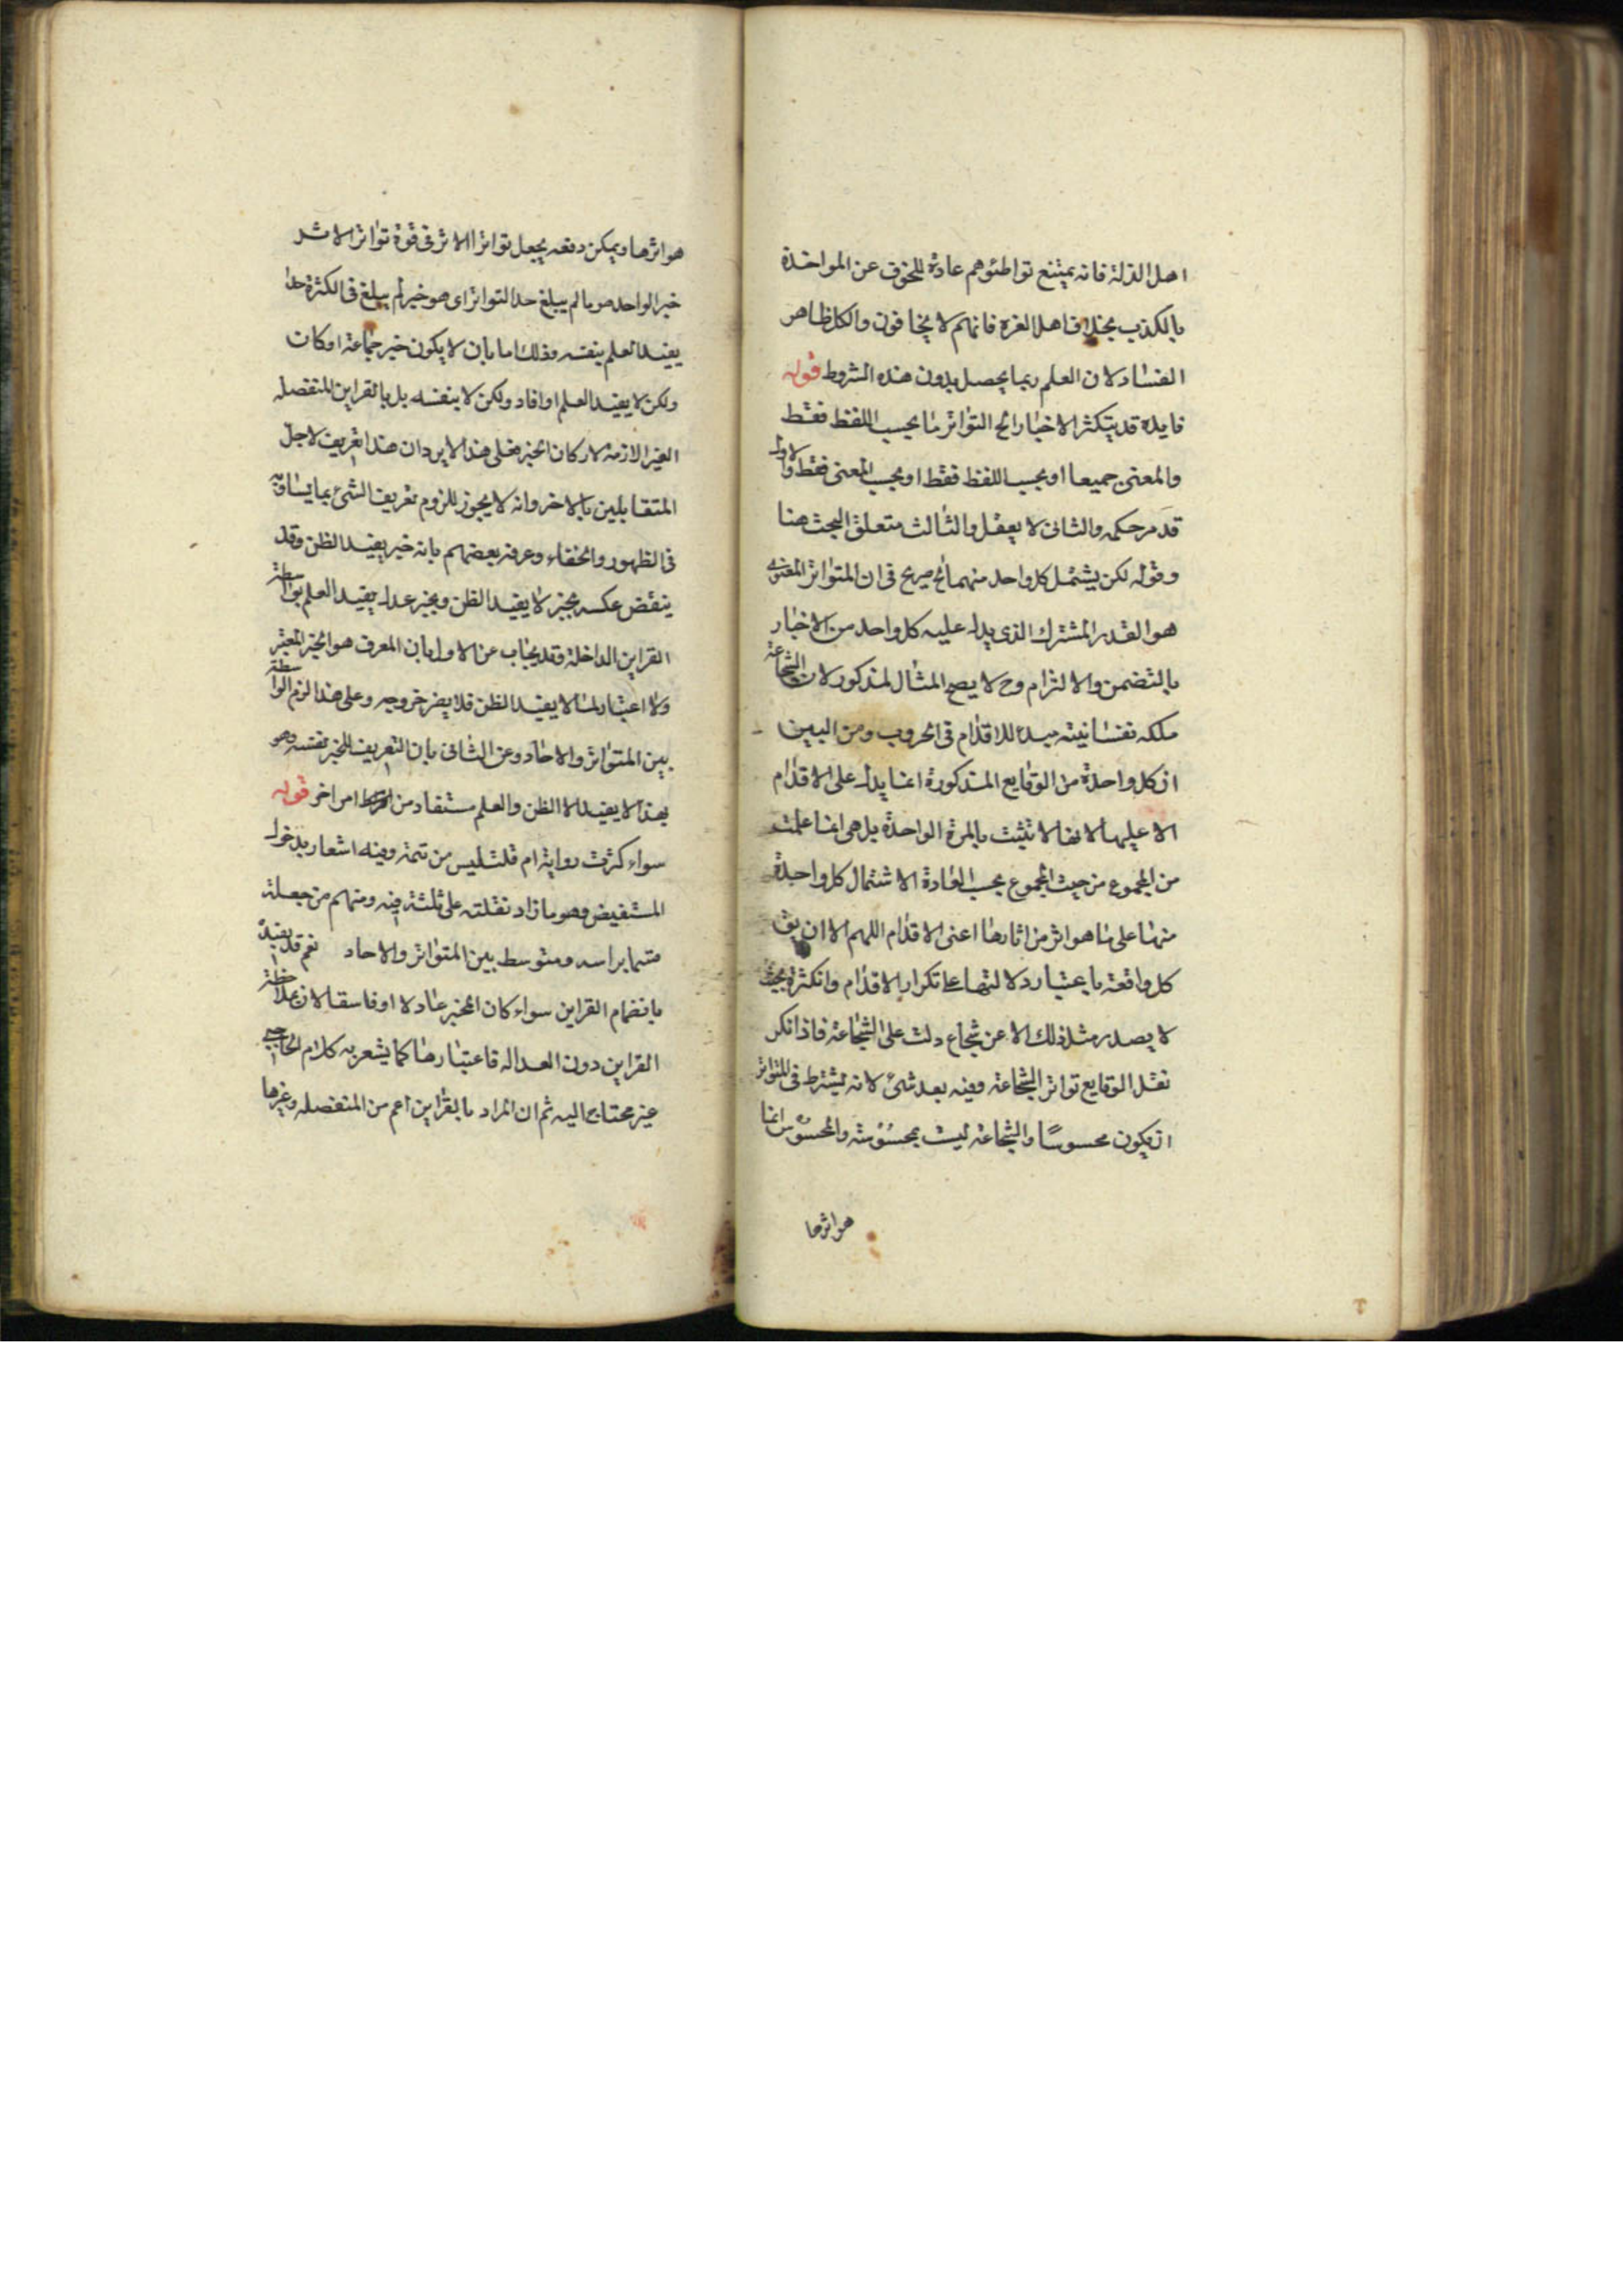 اهل الذلة فانه يمتنع تواطئوهم عادة للخوف عن المواخذة
بالكذب بخلاف اهل العزة فانهم لا يخافون والكل ظاهر
الفساد لان العلم ربما يحصل بدون هذه الشروط قوله
فايدة قد يتكثر الاخبار الخ التواتر اما بحسب اللفظ فقط
والمعنى جميعا او بحسب اللفظ فقط او بحسب المعنى فقط والاول
قد مر حكمه والثانى لا يعقل والثالث متعلق البحث هنا
وقوله لكن يشتمل كل واحد منهما الخ صريح فى ان المتواتر المعنوى
هو القدر المشترك الذى يدل عليه كل واحد من الاخبار
بالتضمن والالتزام وح لا يصح المثال المذكور لان الشجاعة
ملكه نفسانيته مبدء للاقدام فى الحروب ومن البين
ان كل واحدة من الوقايع المذكورة انما يدل على الاقدام
الا عليها لانها لا تثبت بالمرة الواحدة بل هى انما علمت
من المجموع من حيث المجموع بحسب العادة الا شتمال كل واحدة
منها على ما هو اثر من اثارها اعنى الاقدام اللهم الا ان يق
كل واقعة باعتبار دلالتها على تكرار الاقدام وانكثرة بحيث
لا يصدر مثل ذلك الا عن شجاع دلت على الشجاعة فاذا تكرر
نقل الوقايع تواتر الشجاعة وفيه بعد شئ لانه يشترط فى المتواتر
ان يكون محسوسًا والشجاعة ليست بمحسوسة والمحسوس انما
هو اثرها
هو اثرها ويمكن دفعه بجعل تواتر الاثر فى قوة تواتر الاثر
خبر الواحد هو ما لم يبلغ حد التواتر اى هو خبر لم يبلغ فى الكثرة حدا
يفيد العلم بنفسه وذلك اما بان لا يكون خبر جماعة او كان
ولكن لا يفيد العلم او افاد ولكن لا بنفسه بل بالقراين المنفصله
الغير الازمة لاركان الخبر فعلى هذا لا يرد ان هذا تعريف لاجل
المتقابلين بالاخر وانه لا يجوز للزوم تعريف الشئ بما يساويه
فى الظهور والخفاء وعرفه بعضهم بانه خبر يفيد الظن وقد
ينقض عكسه بخبر لا يفيد الظن وبخبر عدل يفيد العلم بواسطة
القراين الداخلة وقد يجاب عن الاول بان المعرف هو الخبر المعتبر
ولا اعتبار لما لا يفيد الظن فلا يضر خروجه وعلى هذا لزم الواسطة
بين المتواتر والاحاد وعن الثانى بان التعريف للخبر بنفسه وهو
بهذا لا يفيد الا الظن والعلم مستفاد من امر اخر قوله
سواء كثرت رواية ام قلت ليس من تتمة وفيه اشعار بدخول
المستفيض وهو ما زاد نقلته على ثلثة فيه ومنهم من جعله
قسما براسه ومتوسط بين المتواتر والاحاد نعم قد يفيد
بانضمام القراين سواء كان المخبر عادلا او فاسقا لان ملاحظة
القراين دون العداله فاعتبارها كما يشعر به كلام الحاجبى
غير محتاج اليه ثم ان المراد بالقراين اعم من المنفصله وغيرها